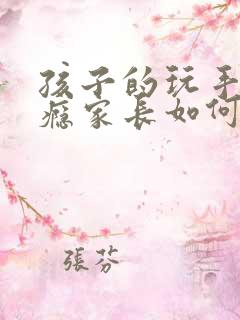 孩子的玩手
瘾家长如何
張芬